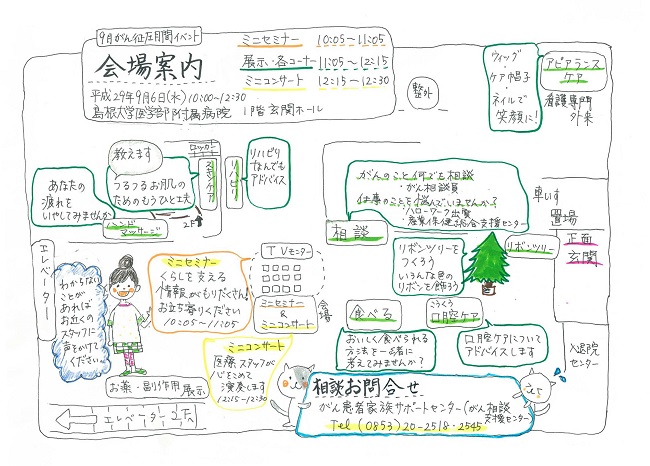 9月がん征圧月間イベント
会場案内
平成29年9月6日(水)10:00〜12:30
島根大学医学部附属病院 1階玄関ホール
ミニセミナー 10:05〜11:05
展示・各コーナー 11:05〜12:15
ミニコンサート 12:15〜12:30
整外
ウィッグ・
ケア帽子・
ネイルで
笑顔に!
アピアランス
ケア
看護専門
外来
教えます
つるつるお肌の
ためのもうひと工夫
ロッカー
スキンケア
リハビリ
リハビリ
なんでも
アドバイス
あなたの
疲れを
いやしてみませんか
ハンド
マッサージ
2F
がんのこと何でも相談
・がん相談員
仕事のことを悩んでいませんか?
・ハローワーク出雲
産業保健総合支援センター
相談
車いす
置場
正面
玄関
リボンツリーを
つくろう
いろんな色の
リボンを飾ろう
リボンツリー
エレベーター
わからない
ことが
あれば
お近くの
スタッフに
声をかけて
ください。
ミニセミナー
くらしを支える
情報がもりだくさん!
お立ち寄りください
10:05〜11:05
TVモニター
ミニセミナー
&
ミニコンサート
会場
食べる
おいしく食べられる
方法を一緒に
考えてみませんか?
こうくう
口腔ケア
口腔ケアについて
アドバイスします
入退院
センター
ミニコンサート
医療スタッフが
心をこめて
演奏します
12:15〜12:30
お薬・副作用 展示
エレベーター 2Fへ
相談お問合せ
がん患者家族サポートセンター(がん相談
支援センター)
Tel (0853)20-2518・2545